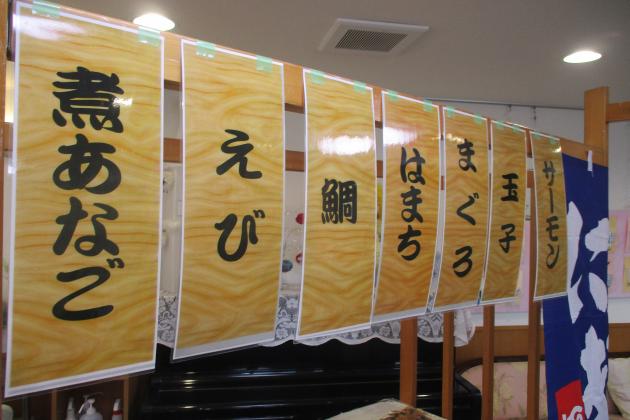 煮あなご
えび
鯛
はまち
まぐろ
玉子
サーモン